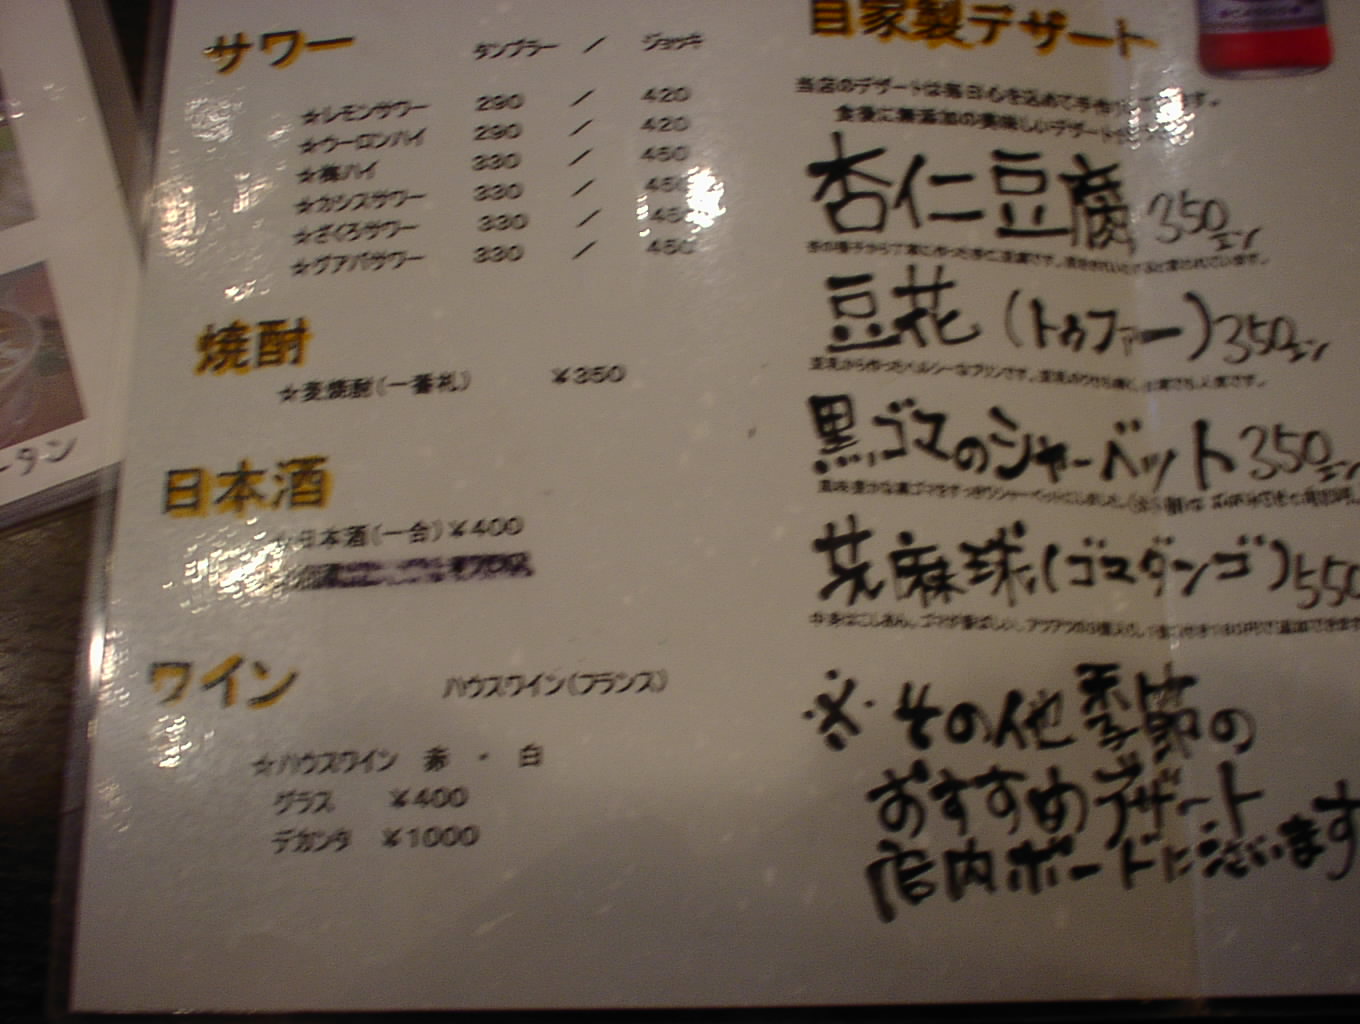 サワー タンブラー / ジョッキ
☆レモンサワー 290 / 420
☆ウーロンハイ 290 / 420
☆梅ハイ 330 / 450
☆カシスサワー 330 / 450
☆ざくろサワー 330 / 450
☆グアバサワー 330 / 450
焼酎
☆麦焼酎(一番札) ¥350
日本酒
日本酒(一合)¥400
ワイン ハウスワイン(フランス)
☆ハウスワイン 赤 ・ 白
グラス ¥400
デカンタ ¥1000
自家製デザート
当店のデザートは毎日心を込めて手作り
食後に無添加の美味しいデザート
杏仁豆腐 350エン
豆花 (トゥファー)350エン
豆乳から作ったヘルシーなプリンです。
黒ゴマのシャーベット 350エン
芝麻球(ゴマダンゴ)550
※その他季節の
おすすめデザート
店内ボードにございます
ータン